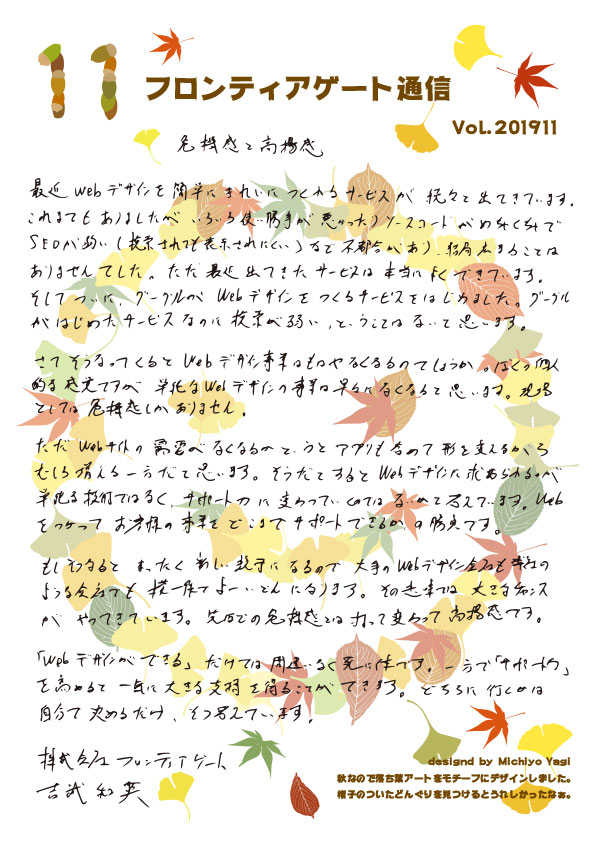 11
フロンティアゲート通信
VoL.201911
危機感と高揚感
最近Webデザインを簡単にきれいにつくれるサービスが続々と出てきています。
これまでもありましたがいろいろ使い勝手が悪かったりソースコードがめちゃくちゃで
SEOが弱い(検索されても表示されにくい)など不都合があり、結局広まることは
ありませんでした。ただ最近出てきたサービスは本当によくできています。
そしてついに、グーグルがWebデザインをつくるサービスをはじめました。グーグル
がはじめたサービスなのに検索が弱い、ということはないと思います。
さてそうなってくるとWebデザイン事業はもはやなくなるのでしょうか。ぼくの個人
的な感覚ですが単純なWebデザインの事業は早々になくなると思います。現場
としては危機感しかありません。
ただWebサイトの需要がなくなるかというとアプリも含めて形を変えながら
むしろ増える一方だと思います。そうだとするとWebデザインに求められるのが
単純な技術ではなく、サポート力に変わっていくのではないかと考えています。Web
をつかってお客様の事業をどこまでサポートできるか、の勝負です。
もしそうなるとまったく新しい競争になるので大手のWebデザイン会社も弊社の
ような会社でも横一線でよーいどんになります。その未来では大きなチャンス
がやってきています。先ほどの危機感とは打って変わって高揚感です。
「Webデザインができる」だけでは間違いなく死に体です。一方で「サポート力」
を高めると一気に大きな支持を得ることができます。どちらに行くかは
自分で決めるだけ、そう考えています。
株式会社フロンティアゲート
吉武和英
designd by Michiyo Yagi
秋なので落ち葉アートをモチーフにデザインしました。
帽子のついたどんぐりを見つけるとうれしかったなぁ。